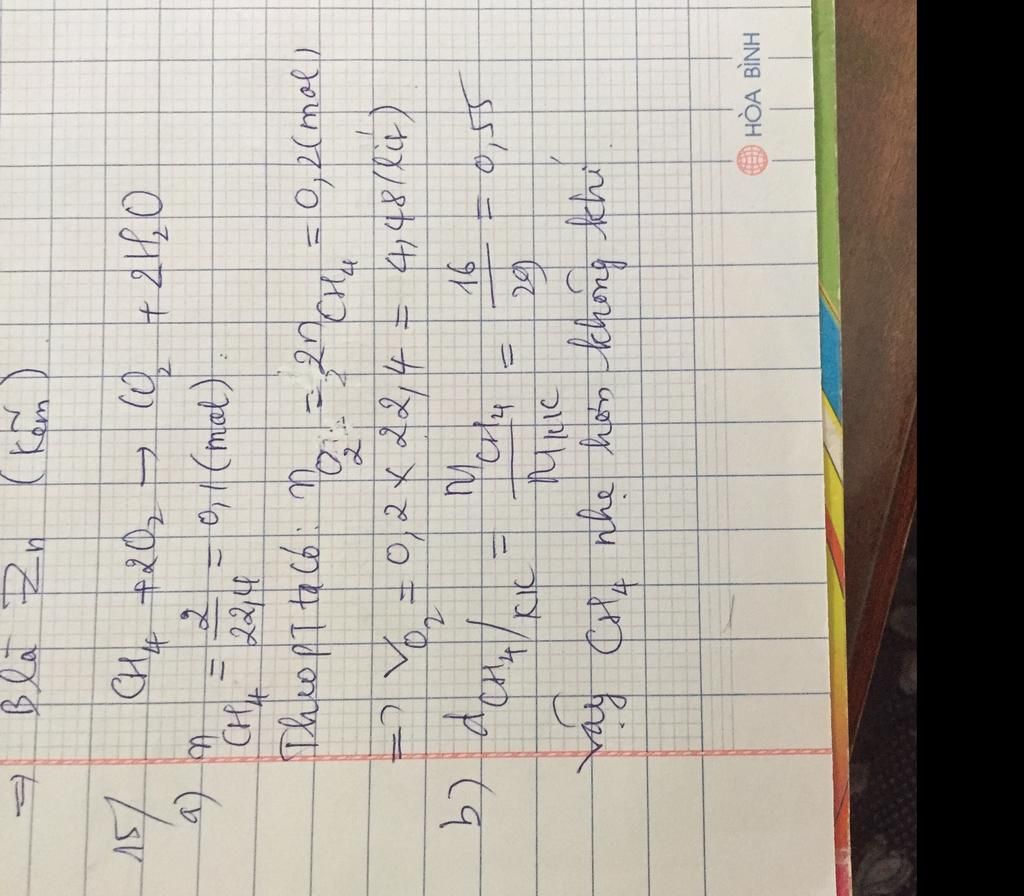 => B là Zn (kẽm)
15/ CH4 + 2O2 → CO2 + 2H2O
a) nCH4 = 2/22,4 = 0,1 (mol)
Theo PT ta có: nO2 = 2nCH4 = 0,2 (mol)
=> VO2 = 0,2 x 22,4 = 4,48 (lít)
b) dCH4/KK = MCH4/MKK = 16/29 = 0,55
Vậy CH4 nhẹ hơn không khí
HÒA BÌNH